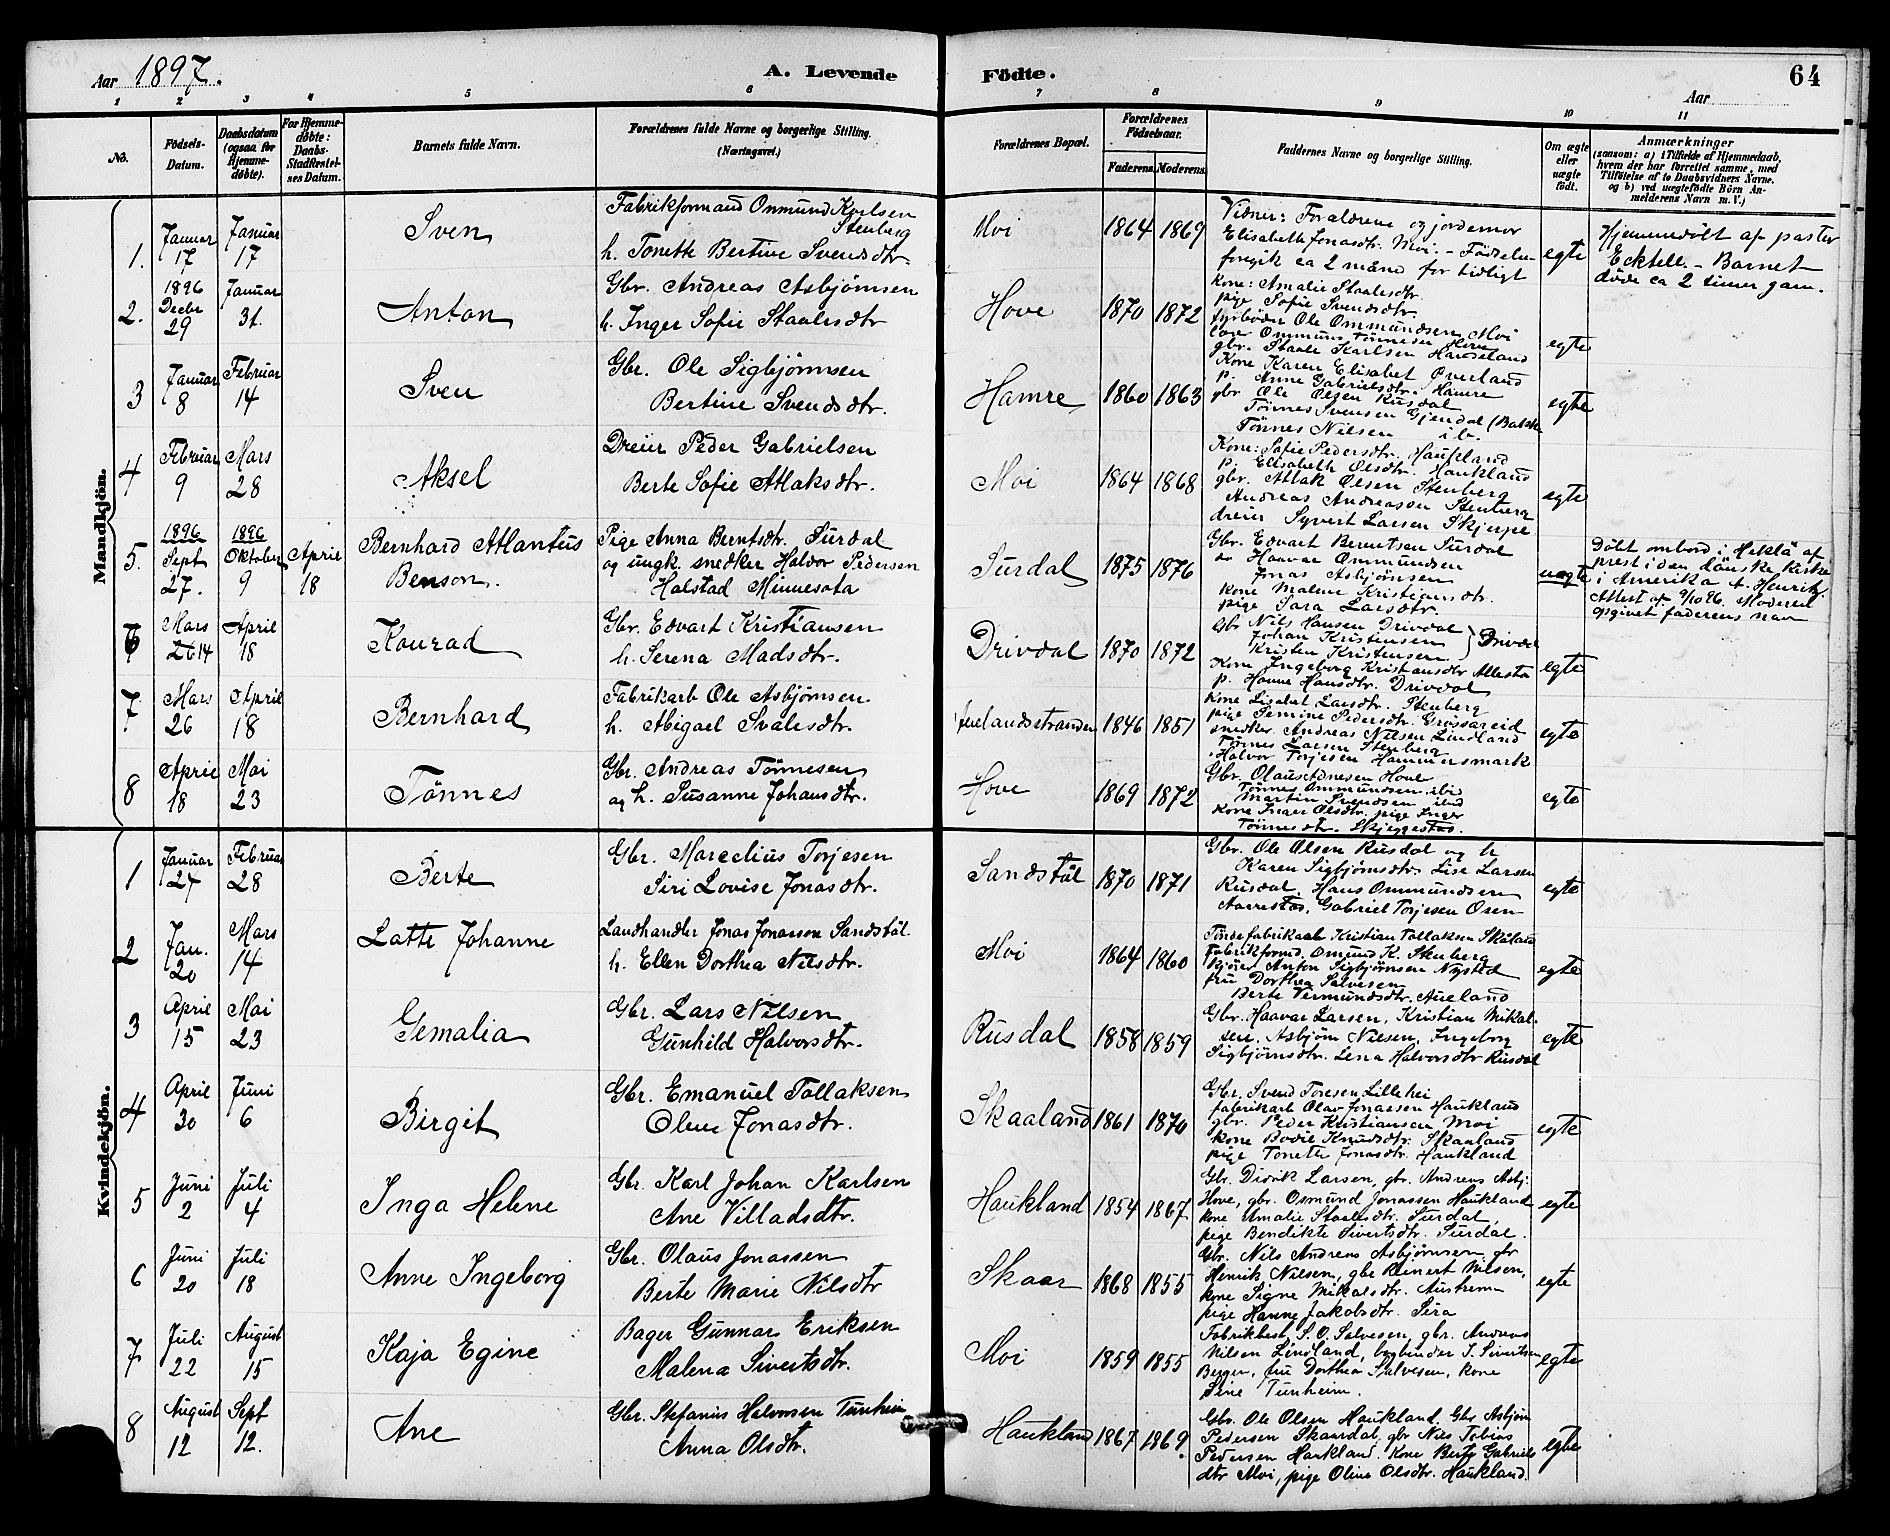 Aar 1897.
A. Levende Födte.
64
Aar
1 2 3 4 5 6 7 8 9 10 11
No.
Födsels-Datum.
Daabsdatum (ogsaa for Hjemme-döbte).
For Hjemme-döbte: Daabs-Stadfæstel-ses Datum.
Barnets fulde Navn.
Forældrenes fulde Navne og borgerlige Stilling. (Næringsvei.)
Forældrenes Bopæl.
Forældrenes Födselsaar.
Faderens. Moderens.
Faddernes Navne og borgerlige Stilling.
Om ægte eller uægte födt.
Anmærkninger
(saasom: a) i Tilfælde af Hjemmedaab,
hvem der har forrettet samme, med
Tilföielse af to Daabsvidners Navne.
og b) ved uægtefödte Börn An-
melderens Navn m. V.)
Mandkjön.
1. Januar 17 Januar 17 Sven
Fabrikformand Onmund Karlsen Stenberg
h. Tonette Bertine Svendsdtr.
Moi 1864 1869
Vidner: Foraldrene og jordemor
Elisabeth Jonasdtr. Moi. - Födselen
foregik ca 2 måned for tidligt
egte
Hjemmedöbt af pastor
Ecktell. - Barnet
döde ca 2 timer gam.
2. 1896 Decbr 29 Januar 31. Anton
Gbr. Andreas Asbjörnsen
h. Inger Sofie Staalesdtr
Hove 1870 1872
Kone: Amalie Staalesdtr.
pige Sofie Svendsdtr.
fyrböder Ole Ommundsen Moi
Ommund Tönnesen Hove
gbr. Staale Karlsen Haukland
egte
3 Januar 8 Februar 14 Sven
Gbr. Ole Sigbjörnsen
Bertine Svendsdtr.
Hamre 1860 1863
Kone Karen Elisabet Överland
p. Anne Gabrielsdtr. Hamre
gbr Ole Olsen Rusdal
Tönnes Svensen Gjendal
Tönnes Nilsen ib.
egte
4 Februar 9 Mars 28 Aksel
Dreier Peder Gabrielsen
Berte Sofie Atlaksdtr.
Moi 1864 1868
Kone: Sofie Pedersdtr. Haukland
p. Elisabeth Olsdtr. Haukland
gbr. Atlak Olsen Stenberg
Andreas Andreassen Stenberg
dreier Syvert Larsen Skjerpe
egte
5. 1896 Sept 27. 1896 Oktober 9 April 18 Bernhard Atlantus Benson.
Pige Anna Berntsdtr. Surdal
og ungk. snedker Halvor Pedersen
Halstad Minnesota
Surdal 1875 1876
Gbr. Edvart Berentsen Surdal
Haavar Ommundsen
Jonas Asbjönsen
Kone Malene Kristiansdtr.
pige Sara Larsdtr.
uegte
Döbt ombord i Hekla af
prest i den danske kirke
i Amerika A. Henrik
Attest af 9/10 96. Moderen
opgivet faderens navn
6 Mars 26 14 April 18 Konrad
Gbr. Edvart Kristiansen
h. Serena Madsdtr.
Drivdal 1870 1872
Gbr Nils Hansen Drivdal
Johan Kristensen
Kristen Kristensen } Drivdal
Kone Ingeborg Kristiansdtr Allestad
p. Hanne Hansdtr. Drivdal
egte
7. Mars 26 April 18 Bernhard
Fabrikarb Ole Asbjörnsen
h. Abigael Svalesdtr.
1846 1851
Kone Lisabet Larsdtr. Stenberg
pige Semine Pedersdtr. Grössereid
snedker Andreas Nilsen Lindland
Tönnes Larsen Stenberg
Halvor Torjesen Hammersmark
egte
8 April 18 Mai 23 Tönnes
Gbr. Andreas Tönnesen
og h. Susanne Johansdtr.
Hove 1869 1872
Gbr. Olaus Hove
Tönnes Ommundsen ibi
Martin Svendsen ibid
Kone Inger Olsdtr. pige Inger
Tönnesdtr. Skjeggestad.
egte
Kvindekjön.
1 Januar 27 Februar 28 Berte
Gbr. Marselius Torjesen
Siri Lovise Jonasdtr.
Sandstöl 1870 1871
Gbr. Ole Olsen Rusdal og h
Karen Sigbjörnsdtr. Lise Larsen
Rusdal, Hans Ommundsen
Aarrestad, Gabriel Torjesen Osen
egte
2 Jan. 20 Mars 14 Lotte Johanne
Landhandler Jonas Jonassen Sandstöl
h. Ellen Dorthea Nilsdtr.
Moi 1864 1860
Töndefabrikant Kristian Tollaksen Skåland
fabrikformd. Omund K. Stenberg
kjörer Anton Sigbjörnsen Nystad
fru Dorthea Salvesen
Berte Vermundsdtr. Aueland
egte
3 April 15 Mai 23 Gemalia
Gbr. Lars Nilsen
Gunhild Halvorsdtr.
Rusdal 1858 1859
Gbr. Haavar Larsen, Kristian Mikal-
sen, Asbjörn Nilsen, Ingeborg
Sigbjörnsdtr. Lena Halvorsdtr Rusdal
egte
4 April 30 Juni 6 Birgit
Gbr. Emanuel Tollaksen
Olene Jonasdtr.
Skaaland 1861 1870
Gbr. Svend Toresen Lillehei
fabrikarb Olav Jonassen Haukland
gbr. Peder Kristiansen Moi
kone Bodil Knudsdtr. Skaaland
pige Tonette Jonasdtr. Haukland
egte
5 Juni 2 Juli 4 Inga Helene
Gbr. Karl Johan Karlsen
Ane Villadsdtr.
Haukland 1854 1867
Gbr. Didrik Larsen, gbr. Andreas Asbj.
Hove, gbr. Osmund Jonassen Haukland
kone Amalie Staalesdtr. Surdal,
pige Bendikte Sivertsdtr. Surdal.
egte
6 Juni 20 Juli 18 Anne Ingeborg
Gbr. Olaus Jonassen
Berte Marie Nilsdtr
Skaar 1868 1855
Gbr. Nils Andreas Asbjörnsen, gbr
Henrik Nilsen, gbr Reinert Nilsen,
kone Signe Mikalsdtr. Austrem
pige Hanne Jakobsdtr. Sira
egte
7 Juli 22 August 15 Kaja Egine
Bager Gunnar Eriksen
Malena Sivertsdtr.
Moi 1859 1855
Fabrikbest. S. O. Salvesen, gbr. Andreas
Nilsen Lindland, bogbinder T. Sivertsen
Berger, fru Dorthea Salvesen, kone
Sine Tunheim.
egte
8 August 12 Sept 12. Ane
Gbr. Stefanus Halvorsen Tunheim
Anna Olsdtr.
Haukland 1867 1869.
Gbr. Ole Olsen Haukland. Gbr Asbjörn
Pedersen Skandal, gbr Nils Tobias
Pedersen Haukland. Kone Berte Gabriels
dtr Moi, pige Oline Olsdtr. Haukland.
egte